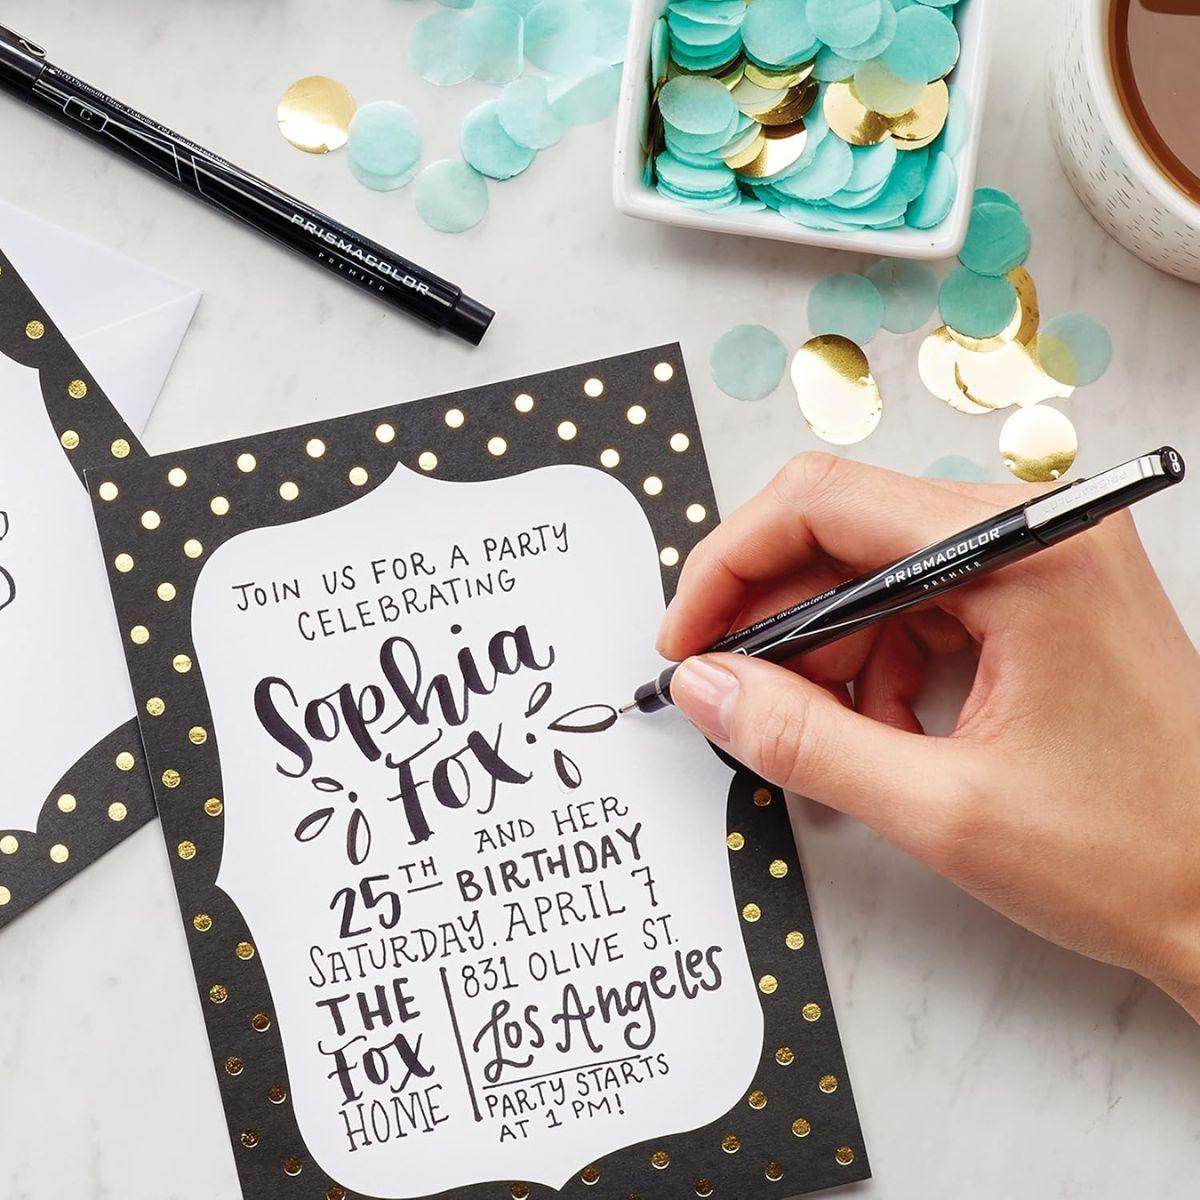 PRISMACOLOR
PREMIER
JOIN US FOR A PARTY
CELEBRATING
Sophia
Fox
AND HER
25TH BIRTHDAY
SATURDAY. APRIL 7
THE
Fox
HOME
831 OLIVE ST.
Los Angeles
PARTY STARTS
AT 1 PM!
PRISMACOLOR
PREMIER
08